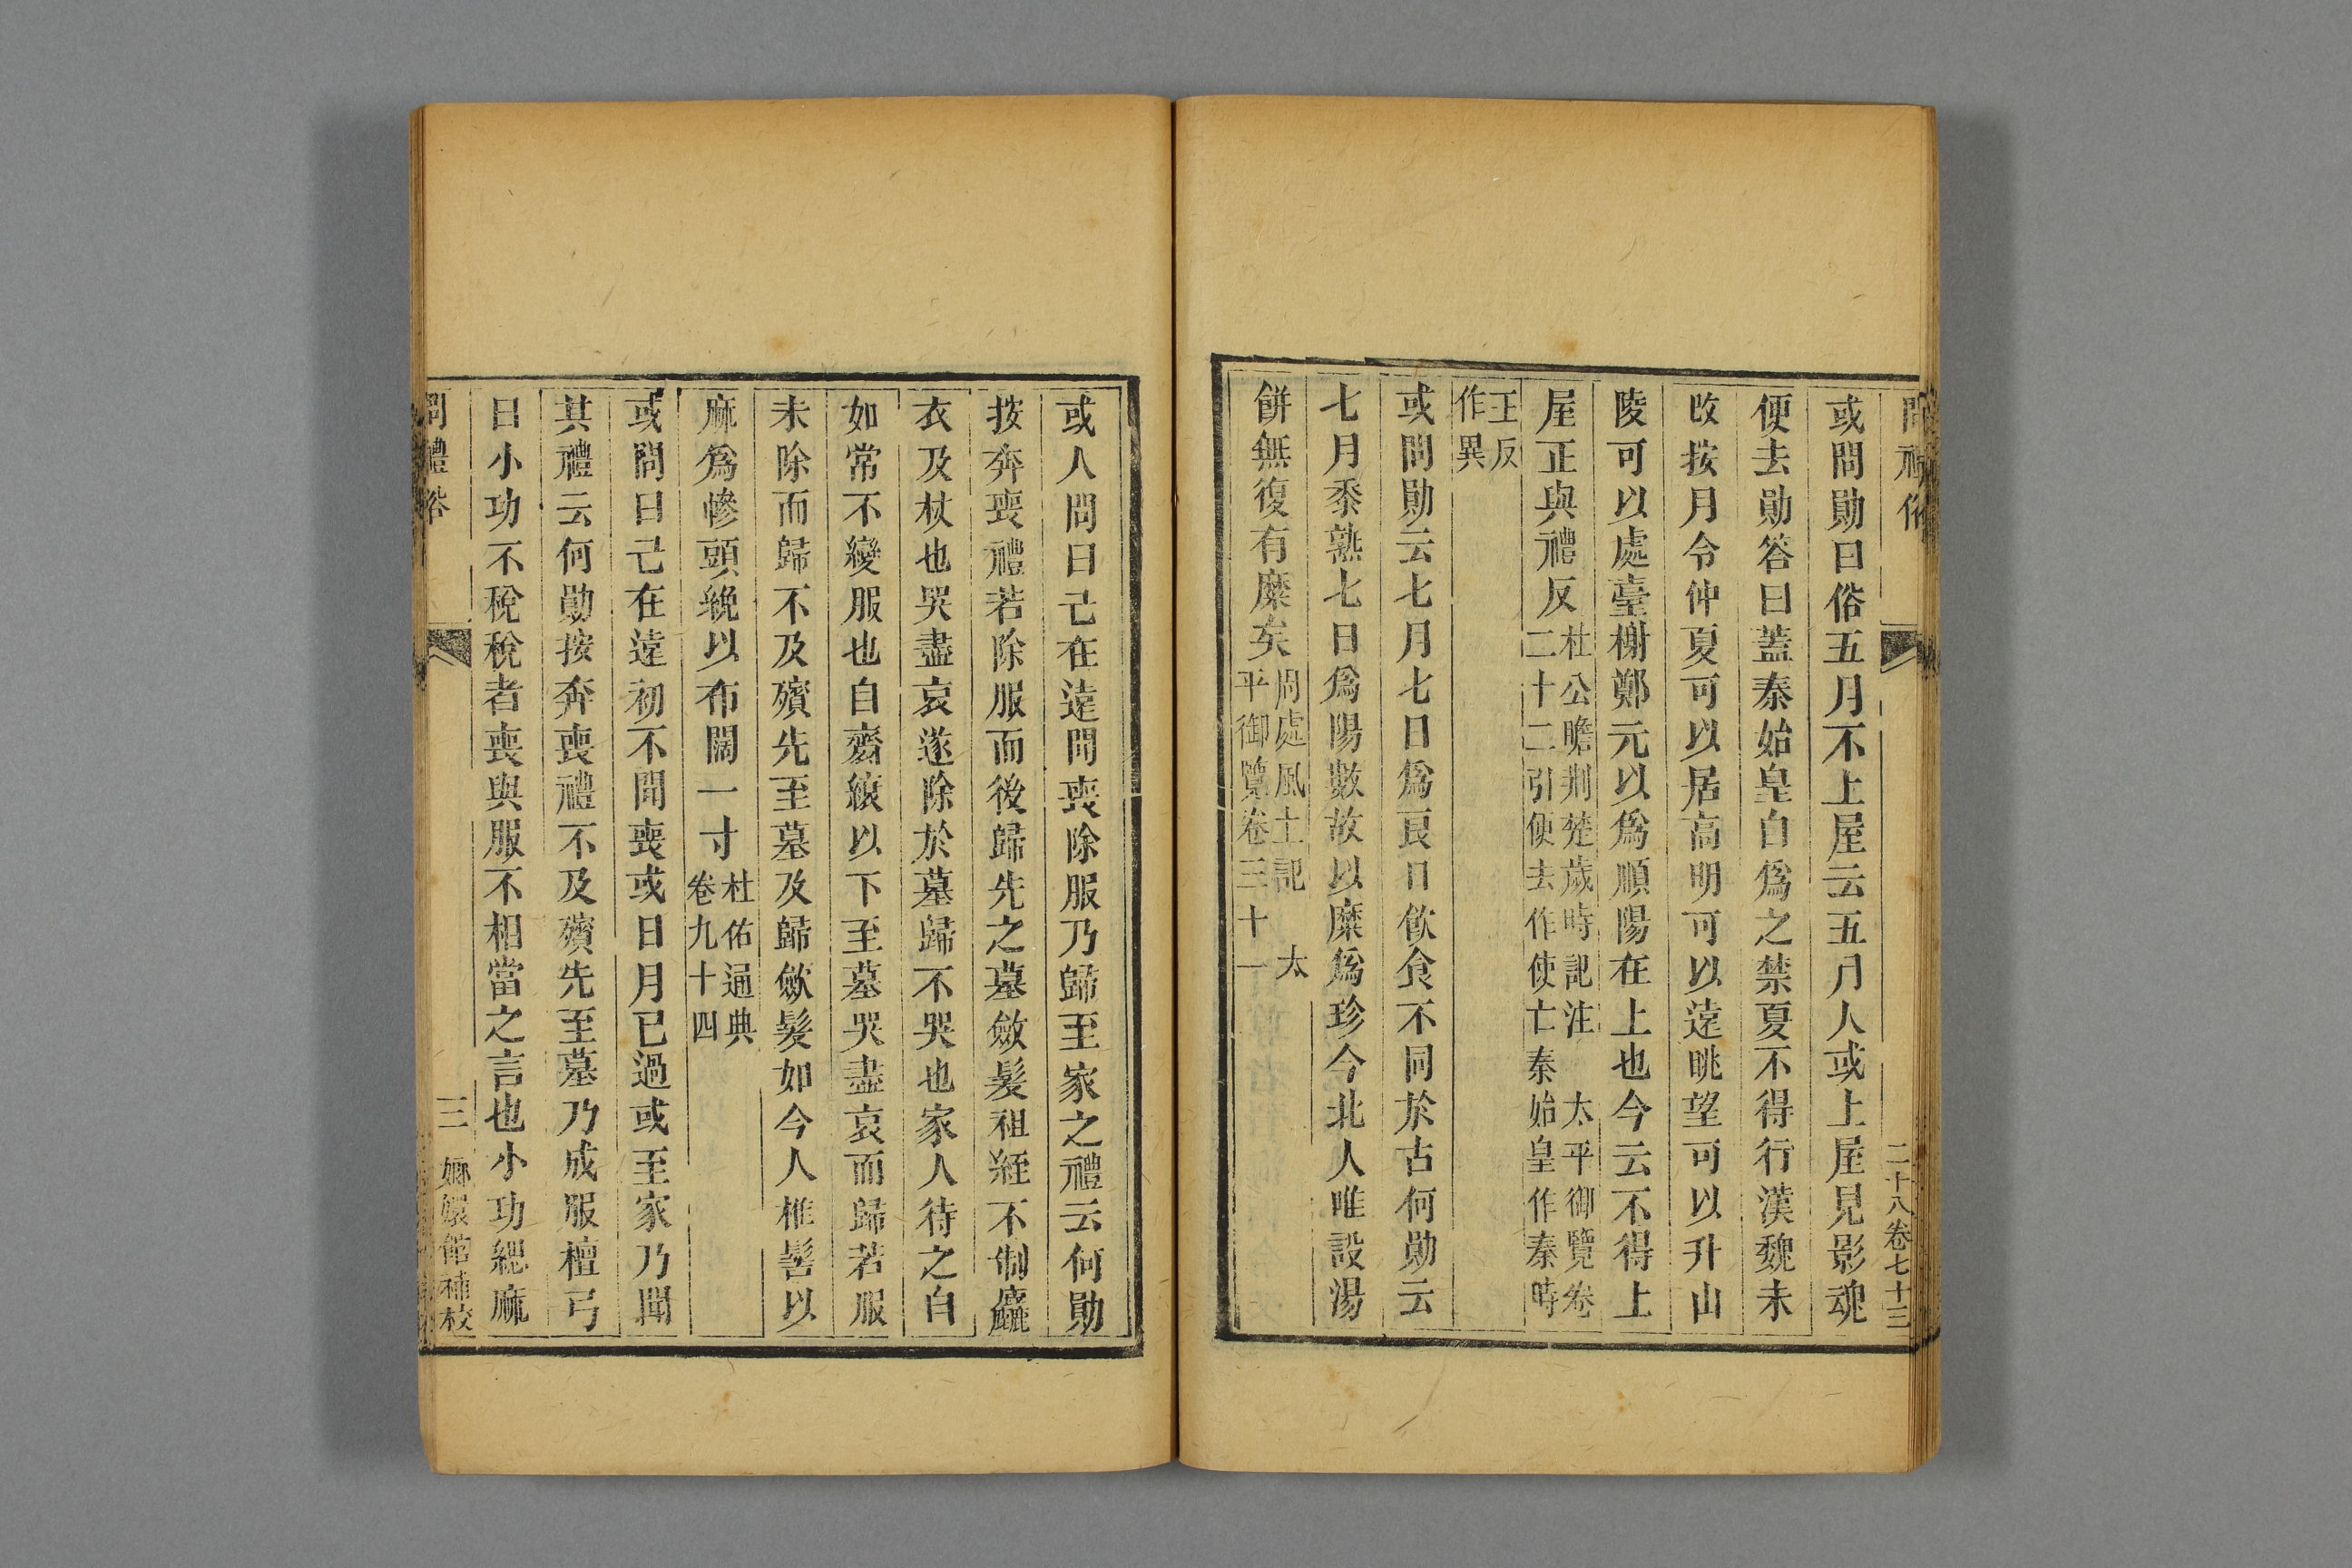 問禮俗
二十八卷七十三
或問勛曰俗五月不上屋云五月人或上屋見影魂
便去勛答曰蓋秦始皇自爲之禁夏不得行漢魏未
改按月令仲夏可以居高明可以遠眺望可以升山
陵可以處臺榭鄭元以爲順陽在上也今云不得上
屋正與禮反
杜公瞻荆楚歲時記注 太平御覽卷
二十二引便去作使亡秦始皇作秦時
正反
作異
或問勛云七月七日爲良日飲食不同於古何勛云
七月黍熟七日爲陽數故以糜爲珍今北人唯設湯
餅無復有糜矣
周處風土記 太
平御覽卷三十一
或人問曰己在遠聞喪除服乃歸至家之禮云何勛
按奔喪禮若除服而後歸先之墓斂髮袒絰不制麤
衣及杖也哭盡哀遂除於墓歸不哭也家人待之自
如常不變服也自齊縗以下至墓哭盡哀而歸若服
未除而歸不及殯先至墓及歸斂髮如今人椎髻以
麻爲幓頭繞以布闊一寸
杜佑通典
卷九十四
或問曰己在遠初不聞喪或日月已過或至家乃聞
其禮云何勛按奔喪禮不及殯先至墓乃成服檀弓
曰小功不稅稅者喪與服不相當之言也小功緦麻
問禮俗
三
嫏嬛館補校